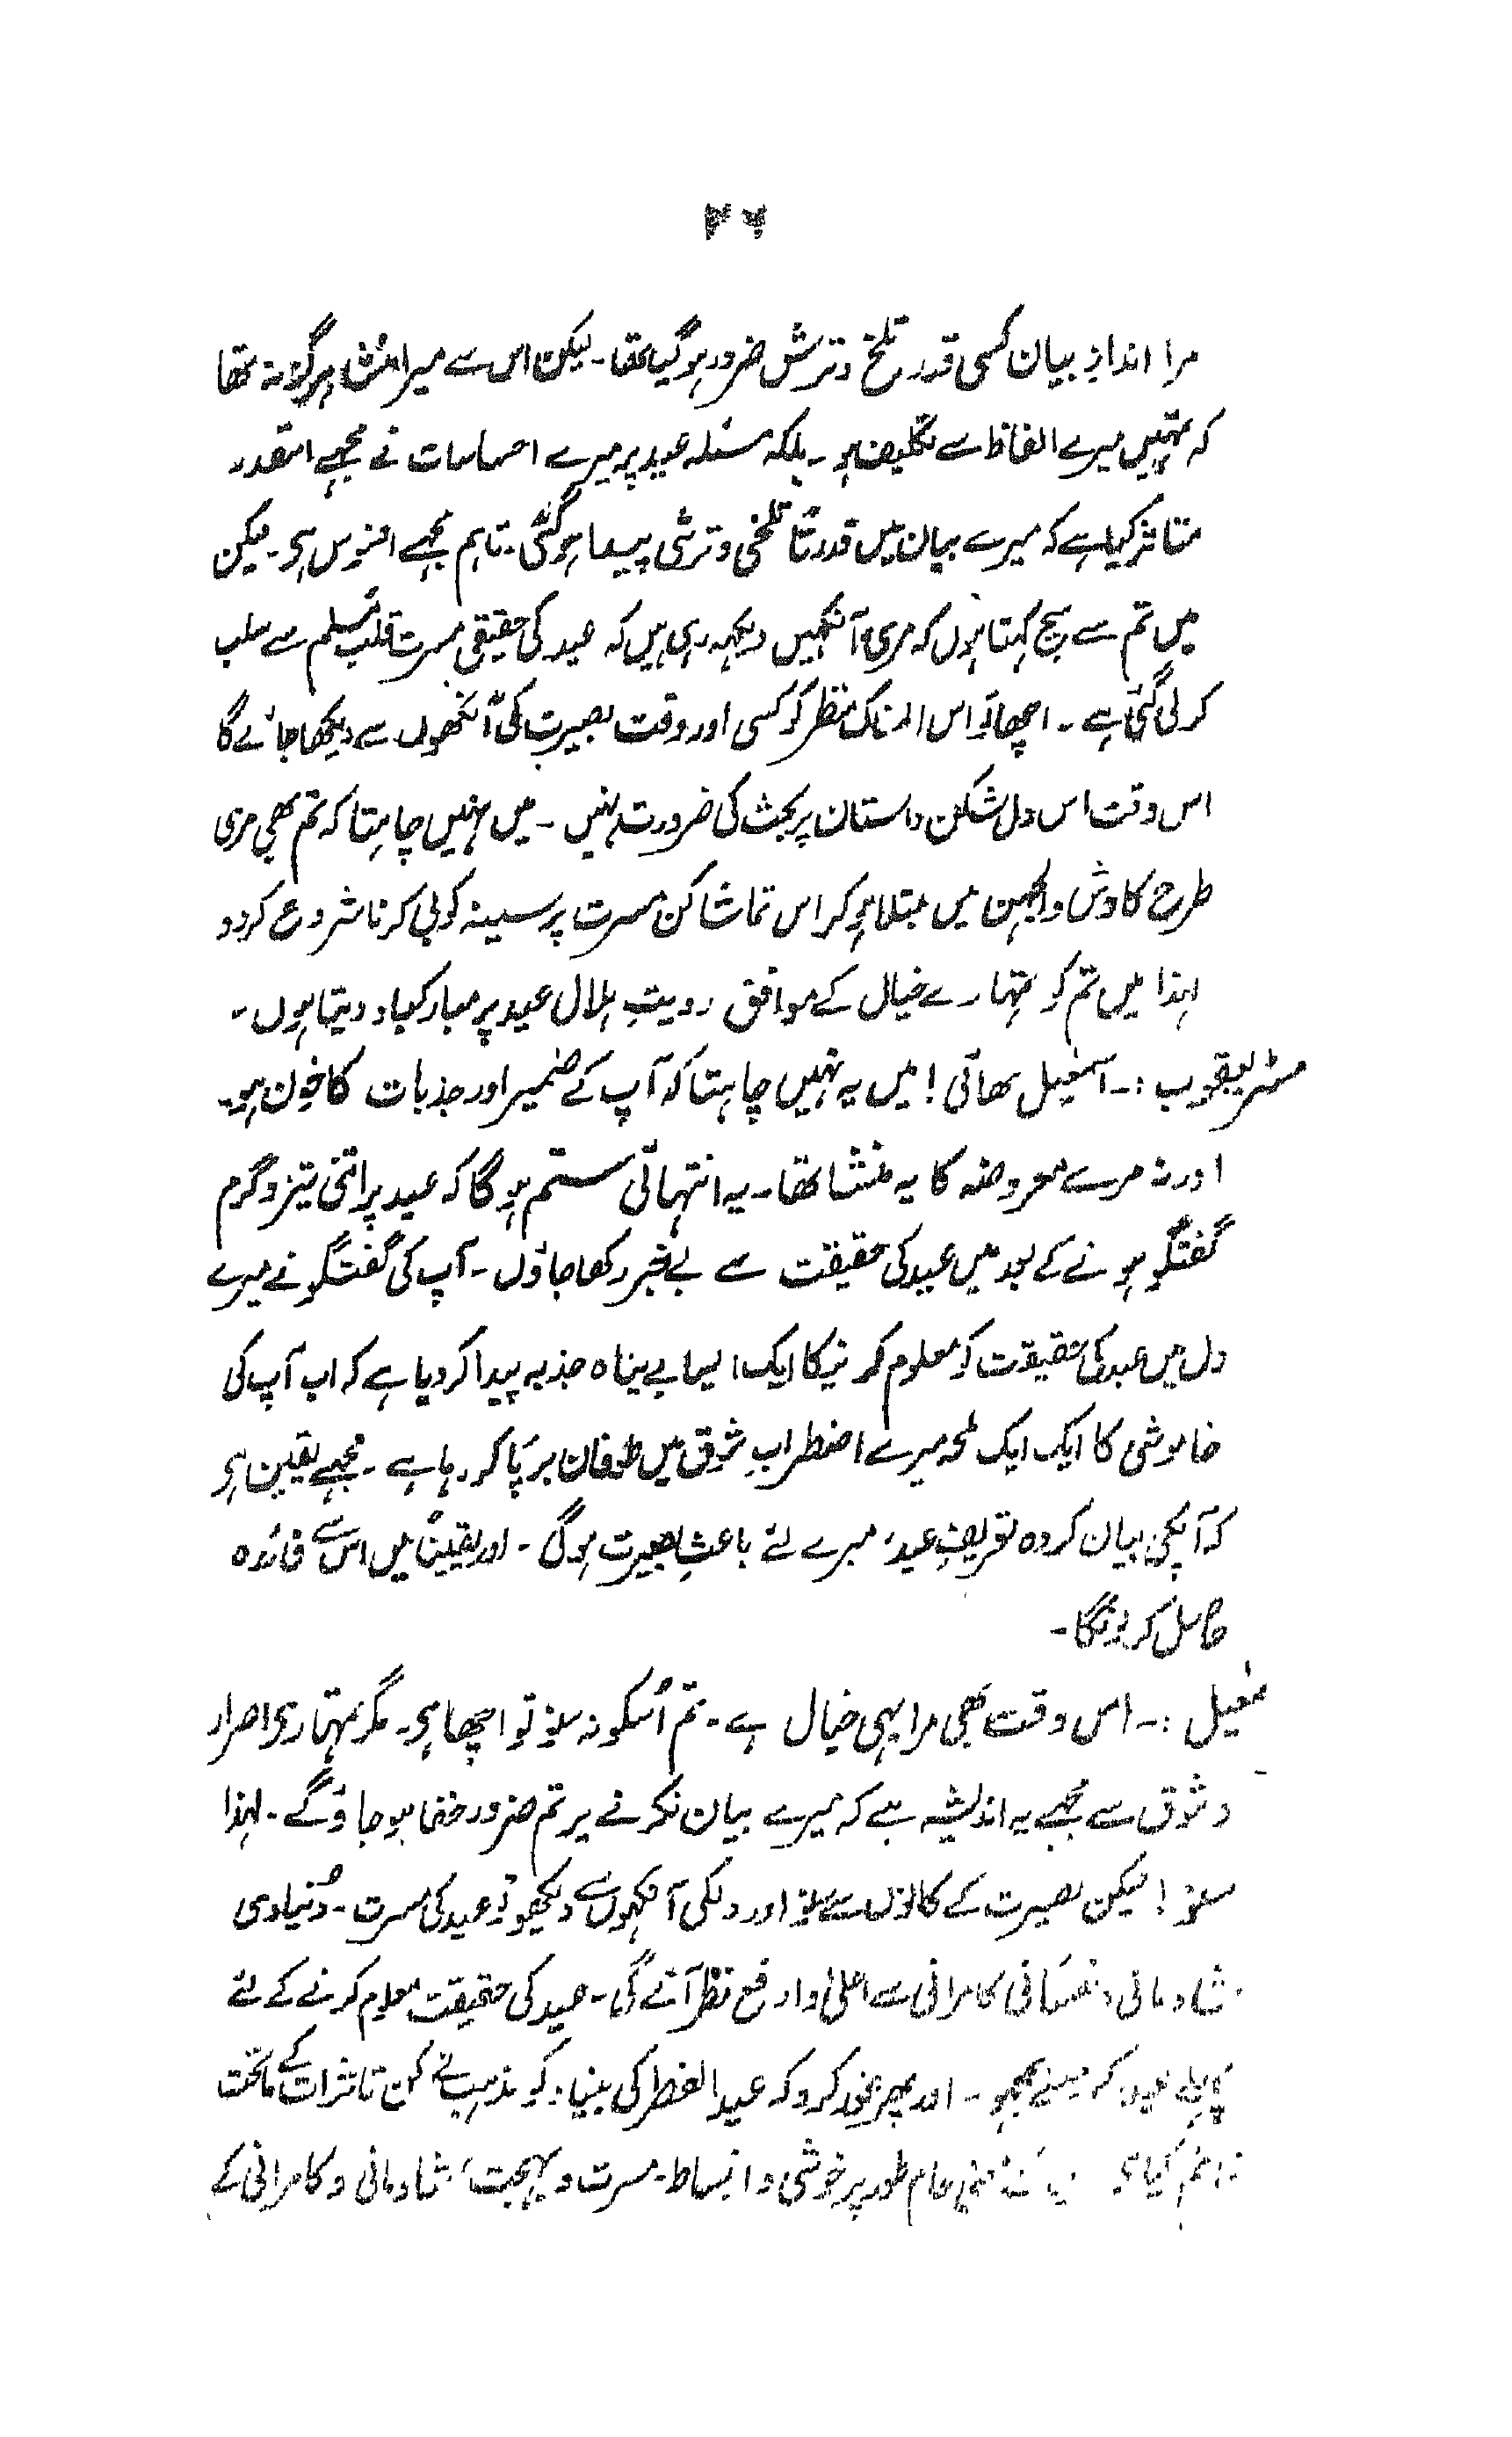 مرا اندازِ بیان کسی قدر تلخ وترش ضرور ہوگیا تھا۔ لیکن اس سے میرا منشا ہرگز نہ تھا
کہ تمہیں میرے الفاظ سے تکلیف ہو۔ بلکہ مسئلہ عید پر میرے احساسات نے مجہے اسقدر
متاثر کیا ہے کہ میرے بیان میں قدرتاً تلخی و ترشی پیدا ہوگئی۔ تاہم مجہے افسوس ہی۔ لیکن
میں تم سے سچ کہتا ہوں کہ مری آنکہیں دیکہہ رہی ہیں کہ عید کی حقیقی مسرت قلبِ مُسلم سے سلب
کرلی گئی ہے۔ اچھا تو اس المناک منظر کو کسی اور وقت بصیرت کی آنکھوں سے دیکھا جائے گا
اس وقت اس دل شکن داستان پر بحث کی ضرورت نہیں۔ میں نہیں چاہتا کہ تم بھی مری
طرح کاوش والجہن میں مبتلا ہوکر اس تماشا کن مسرت پر سینہ کوبی کرنا شروع کردو
لہذا میں تم کو تمہارے خیال کے موافق رویتِ ہلال عید پر مبارکباد دیتا ہوں۔
مسٹر یعقوب :۔ اسمٰعیل بھائی! میں یہ نہیں چاہتا کہ آپ کے ضمیر اور جذبات کا خون ہو۔
اور نہ مرے معروضہ کا یہ منشا تھا۔ یہ انتہائی ستم ہوگا کہ عید پر اتنی تیز و گرم
گفتگو ہونے کے بعد میں عید کی حقیقت سے بے خبر رکھا جاؤں۔ آپ کی گفتگو نے میرے
دل میں عید کی حقیقت کو معلوم کرنیکا ایک ایسا بے پناہ جذبہ پیدا کردیا ہے کہ اب آپ کی
خاموشی کا ایک ایک لمحہ میرے اضطرابِ شوق میں طوفان برپا کر رہا ہے۔ مجہے یقین ہی
کہ آپکی بیان کردہ تعریفِ عید، میرے لئے باعثِ بصیرت ہوگی۔ اور یقیناً میں اس سے فائدہ
حاصل کرونگا۔
سمٰعیل :۔ اس وقت بھی مرا یہی خیال ہے۔ تم اُسکو نہ سنو تو اچھا ہی۔ مگر تمہاری اصرار
وشوق سے مجہے یہ اندیشہ ہے کہ میرے بیان نکرنے پر تم ضرور خفا ہوجاؤگے۔ لہذا
سنو! لیکن بصیرت کے کانوں سے سنو اور دلکی آنکہوں سے دیکھو تو عید کی مسرت۔ دُنیاوی
شادمانی و نفسانی کامرانی سے اعلیٰ وارفع نظر آئے گی۔ عید کی حقیقت معلوم کرنے کے لئے
پہلے عید کے معنے سمجہو۔ اور پھر غور کرو کہ عید الفطر کی بنیاد کو مذہب نے کن تاثرات کے ماتحت
قائم کیا ہی عام طور پر خوشی و انبساط۔ مسرت و بہجت، شادمانی و کامرانی کے